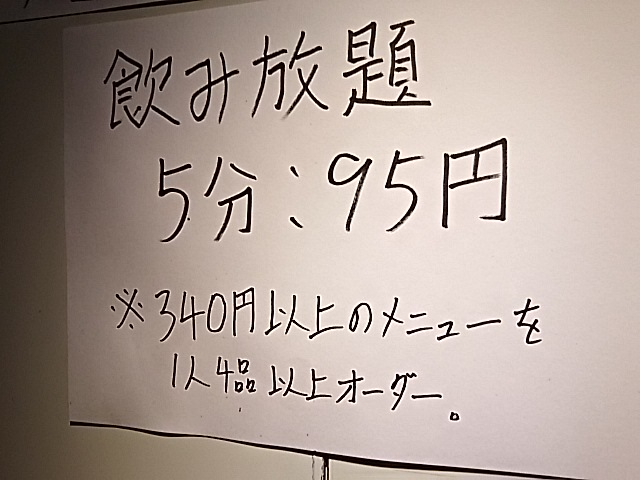 飲み放題
5分:95円
※340円以上のメニューを
1人4品以上オーダー。